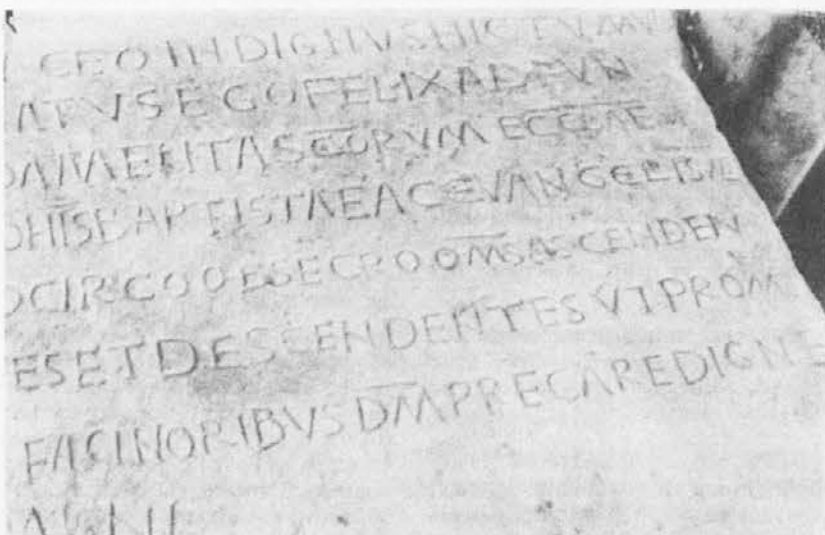 CEO INDIGNVS HIC TVMV
ATVS EGO FELIX AD FVN
DAMENTA SCORVM ECCLAE
OHIS BAPTISTAE AC EVANGELISTAE
OMS ASCENDEN
ES ET DESCENDENTES VT PRO M
FACINORIBVS DM PRECARE DIGNE